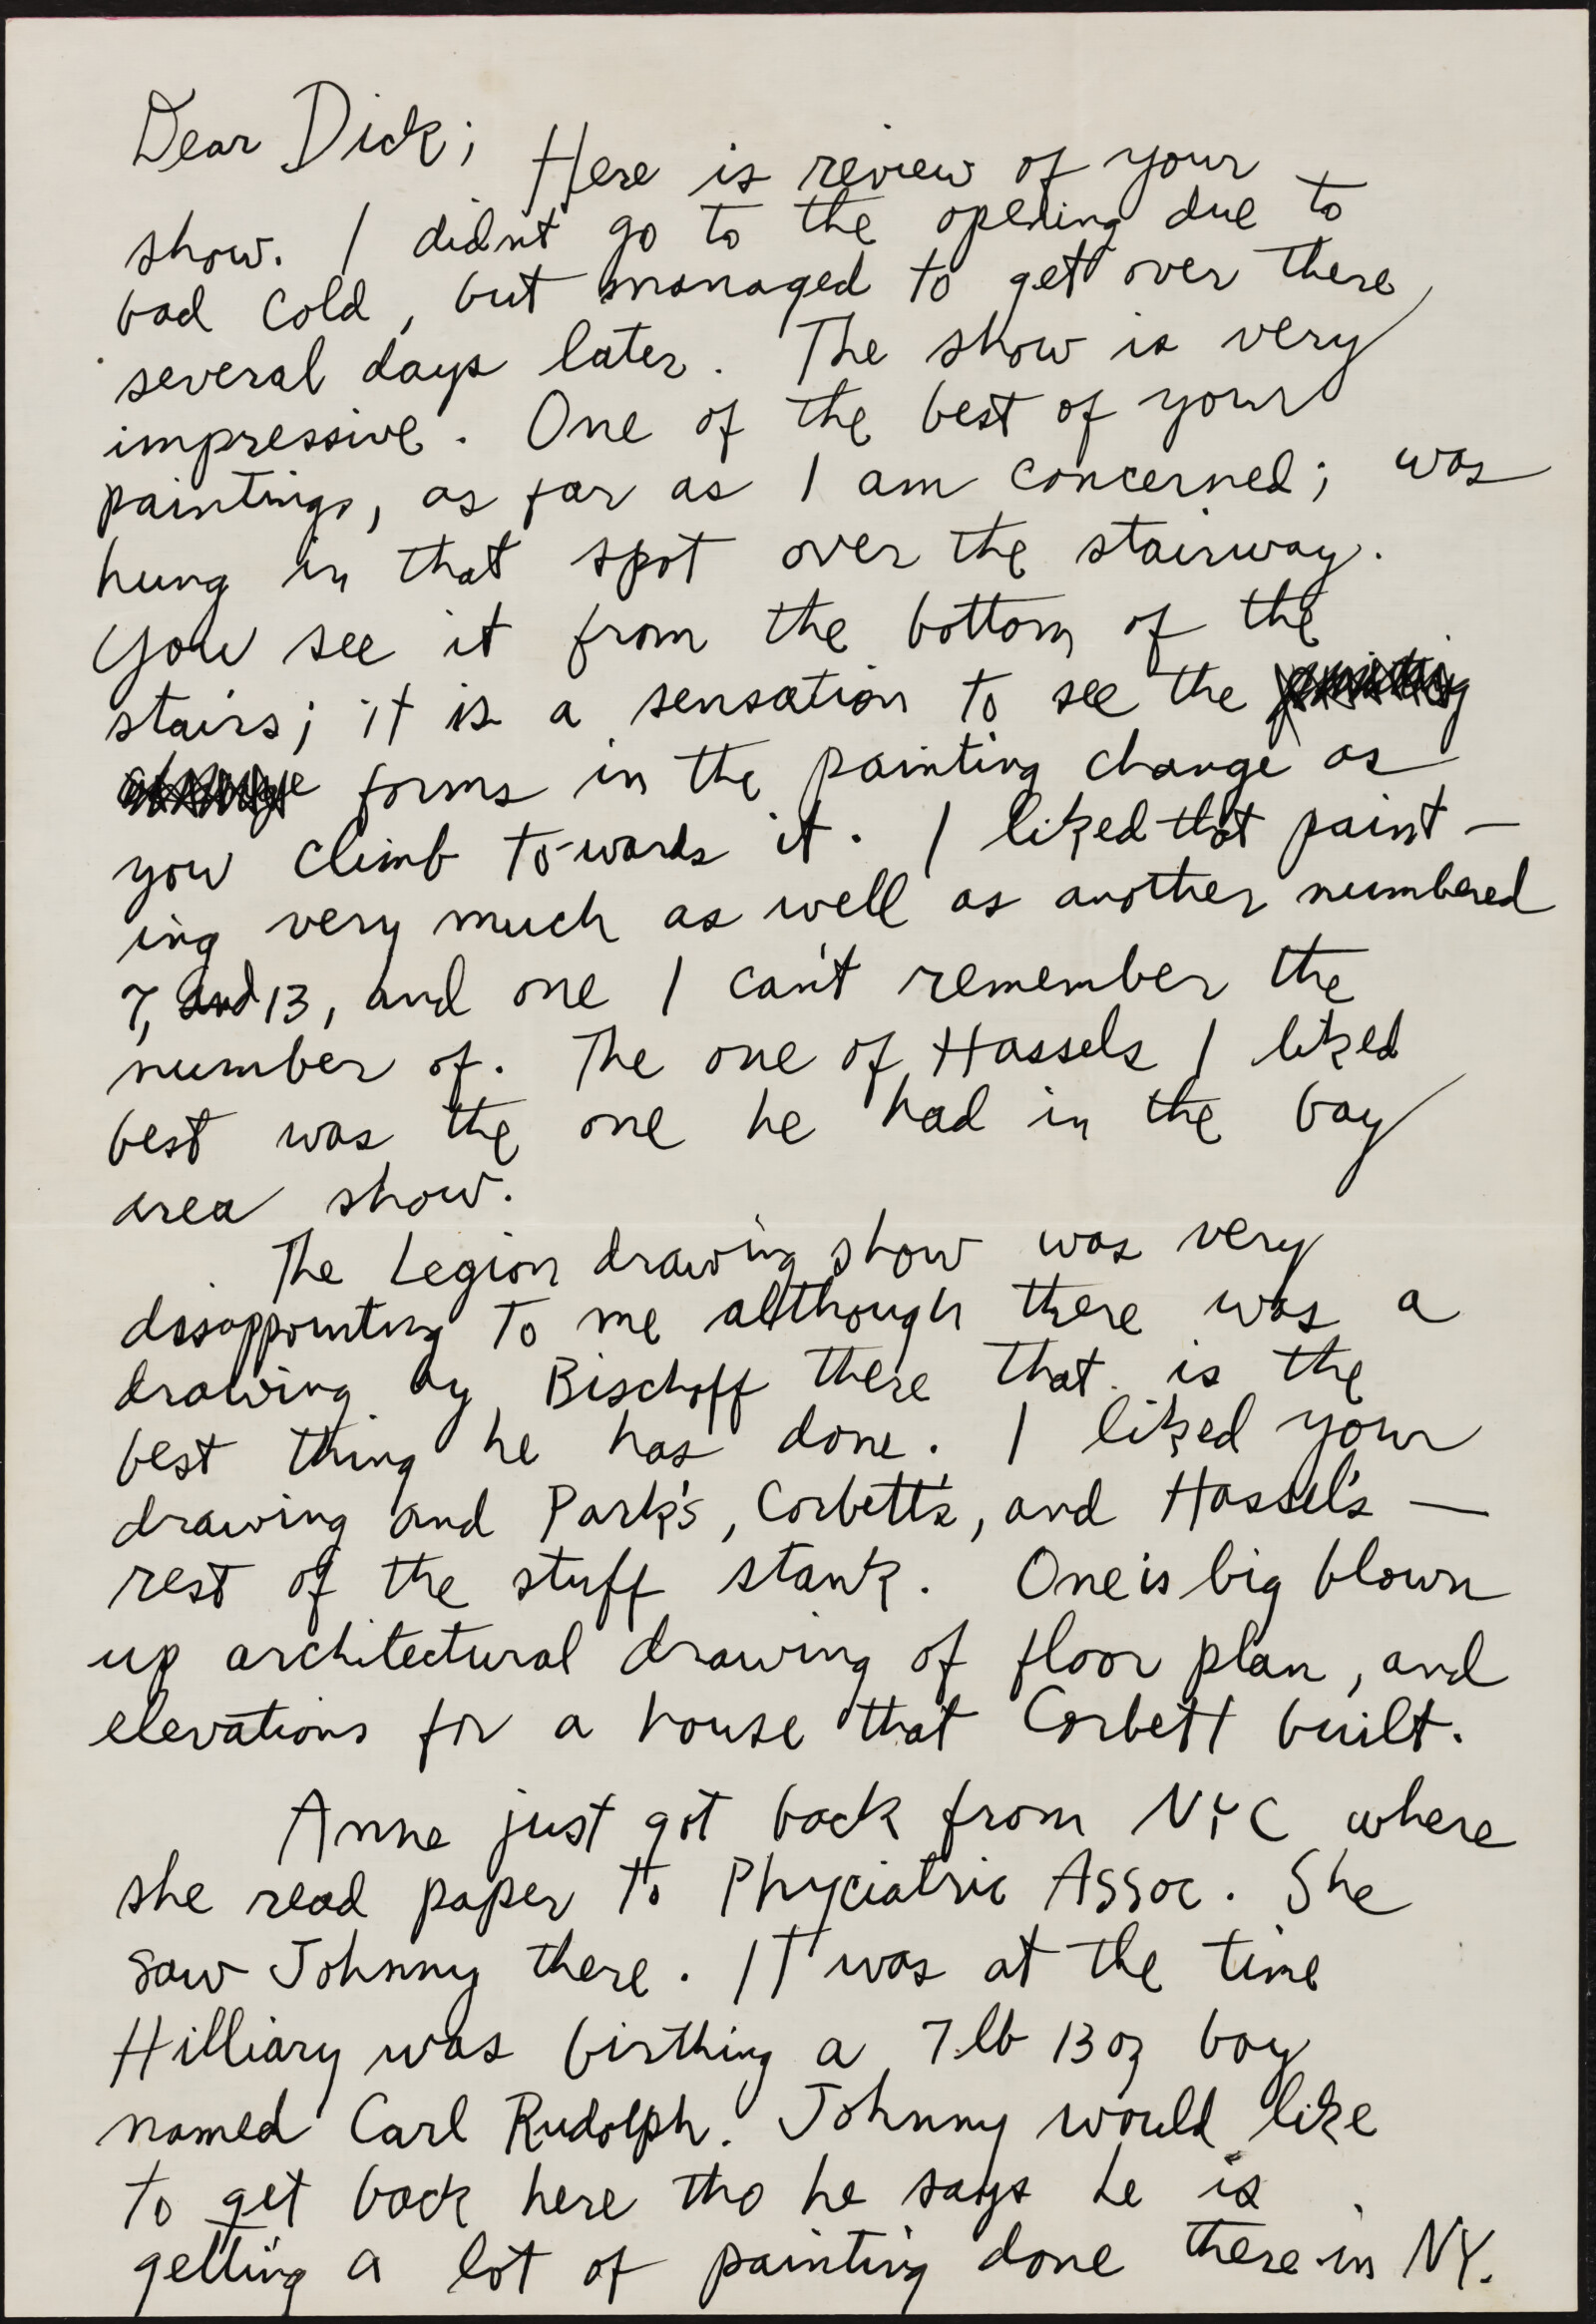 Dear Dick; Here is review of your
show. I didn't go to the opening due to
bad cold, but managed to get over there
several days later. The show is very
impressive. One of the best of your
paintings, as far as I am concerned; was
hung in that spot over the stairway.
You see it from the bottom of the
stairs; it is a sensation to see the
forms in the painting change as
you climb to-wards it. I liked that paint-
ing very much as well as another numbered
7, and 13, and one I can't remember the
number of. The one of Hassels I liked
best was the one he had in the bay
area show.
The Legion drawing show was very
dissappointing to me although there was a
drawing by Bischoff there that is the
best thing he has done. I liked your
drawing and Park's, Corbett's, and Hassel's —
rest of the stuff stank. One is big blown
up architectural drawing of floor plan, and
elevations for a house that Corbett built.
Anne just got back from NYC where
she read paper to Phyciatric Assoc. She
saw Johnny there. It was at the time
Hilliary was birthing a 7 lb 13 oz boy
named Carl Rudolph. Johnny would like
to get back here tho he says he is
getting a lot of painting done there in NY.